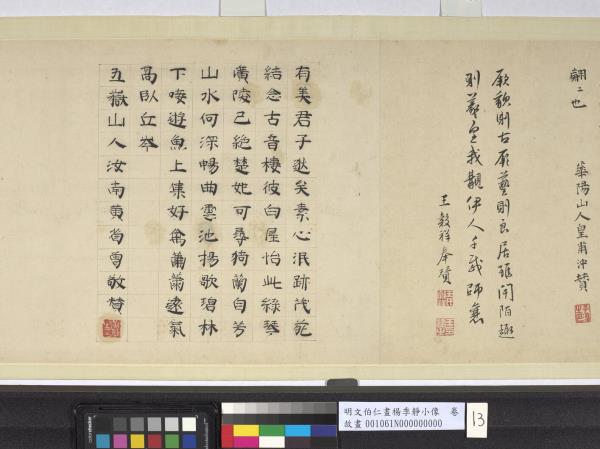 翩〻也
華陽山人皇甫沖贊
厥貌則古厥藝則良居雖闤陌趣
則羲皇我覯伊人千載師襄
王穀祥奉贊
有美君子逖矣素心泯跡茂苑
結念古音棲彼白屋怡此綠琴
廣陵已絕楚妃可尋猗蘭自芳
山水何深暢曲雲池揚歌碧林
下唼遊魚上集好禽蕭蕭遠氣
高臥丘岑
五嶽山人汝南黃省曾敬贊
明文伯仁畫楊季靜小像 卷
故畫 001061N000000000
13